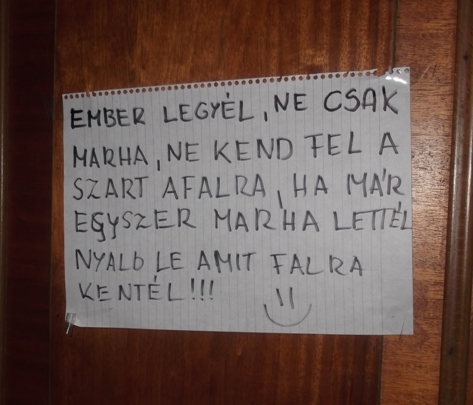 EMBER LEGYÉL, NE CSAK
MARHA, NE KEND FEL A
SZART AFALRA, HA MÁR
EGYSZER MARHA LETTÉL
NYALD LE AMIT FALRA
KENTÉL!!!